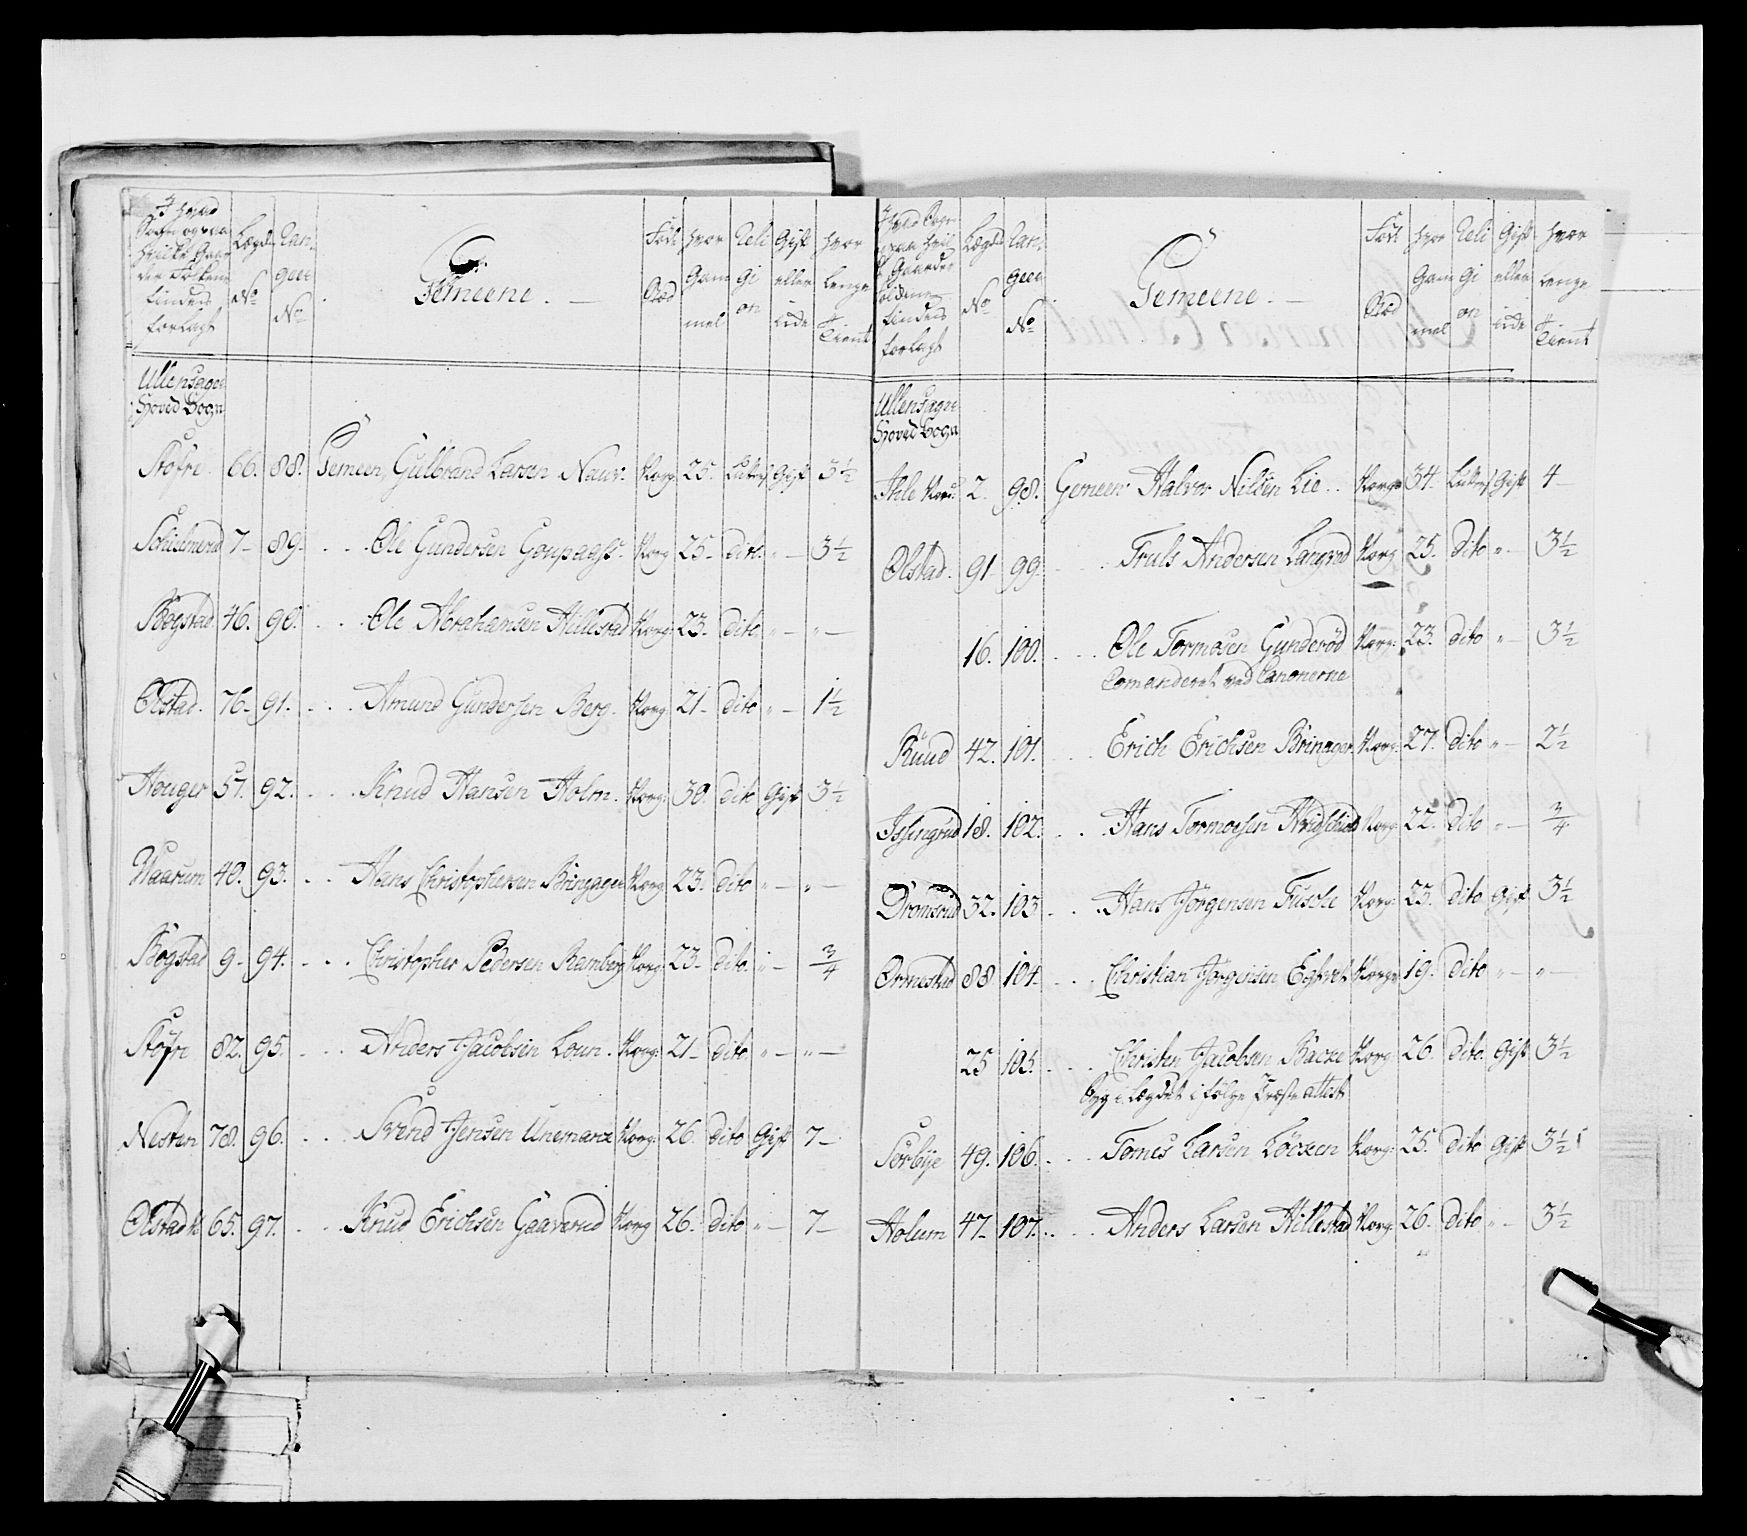 I hvad
Sogn og paa
hvilke Gaar
der Folkene
findes
forlagt
Lægds
No
Ran
geer
No
Gemeene.
Født
Stæd
hvor
Gam
mel
Reli
gi
on
Gift
eller
ude
hvor
lenge
Tient
Ullensager
Hoved Sogn
Stofre. 66. 88. Gemeen, Gulbrand Larsen Naur. Norg. 25. Luthr. Gift 3 1/2
7- 89. . . . Ole Gundersen Norg 25- dito. „- 3 1/2
Bogstad. 46. 90. . . . Ole Abrahamsen Hillestad Norg: 23. dito „- „-
Olstad. 76. 91. . . . Amund Gundersen Berg. Norg 21- dito „- 1 1/2
Houger 57. 92. . . . Knud Hansen Holm. Norg: 30. dito Gift 3 1/2
Waarum 40. 93. . . Hans Christophersen Bringager Norg 23. dito „- „-
Bogstad 9- 94. . . . Christopher Pedersen Ramberg Norg: 23- dito. „- 3/4
Stofre 82. 95. . . . Anders Jacobsen Norg: 21- dito „- „-
Nesten 78. 96. . . . Svend Jensen Norg: 26. dito Gift 7-
Olstad 65. 97. . . . Knud Erichsen Gaaverud Norg 26. dito „- 7-
I hvad Sogn
og paa hvil
ke Gaarder
Folkene
findes
forlagt
Lægds
No
Ran
geer
No
Gemeene.
Født
Stæd
hvor
Gam
mel
Reli
gi
on
Gift
eller
ude
hvor
lenge
Tient
Ullensager
Hoved Sogn
2. 98. Gemeen Halvor Nilsen Lie.. Norge 34. Luthr. Gift 4-
Olstad. 91. 99. . . . Truls Andersen Langrud Norg 25. dito „- 3 1/2
16. 100. . . . Ole Tormosen Gunderød Norg: 23. dito „- 3 1/2
Comanderet ved Canonerne
Ruud 42. 101. . . . Erich Erichsen Brinager Norg: 27. dito „- 2 1/2
18. 102. . . . Hans Tormosen Norg. 22. dito „- 3/4
32. 103. . . . Hans Jørgensen Tusche Norg: 23. dito Gift 3 1/2
Ormestad 88. 104. . . . Christian Jørgensen Norge 19. dito „- „-
25 105. . . . Christen Jacobsen Backe Norg 26. dito. Gift 3 1/2
Syg i Lægdet i følge Præste attest
Sørbye 49. 106. . . . Tomes Larsen Løcken Norg: 25. dito Gift 3 1/2
Holum 47- 107. . . . Anders Larsen Hillestad Norg. 26. dito „- 3 1/2